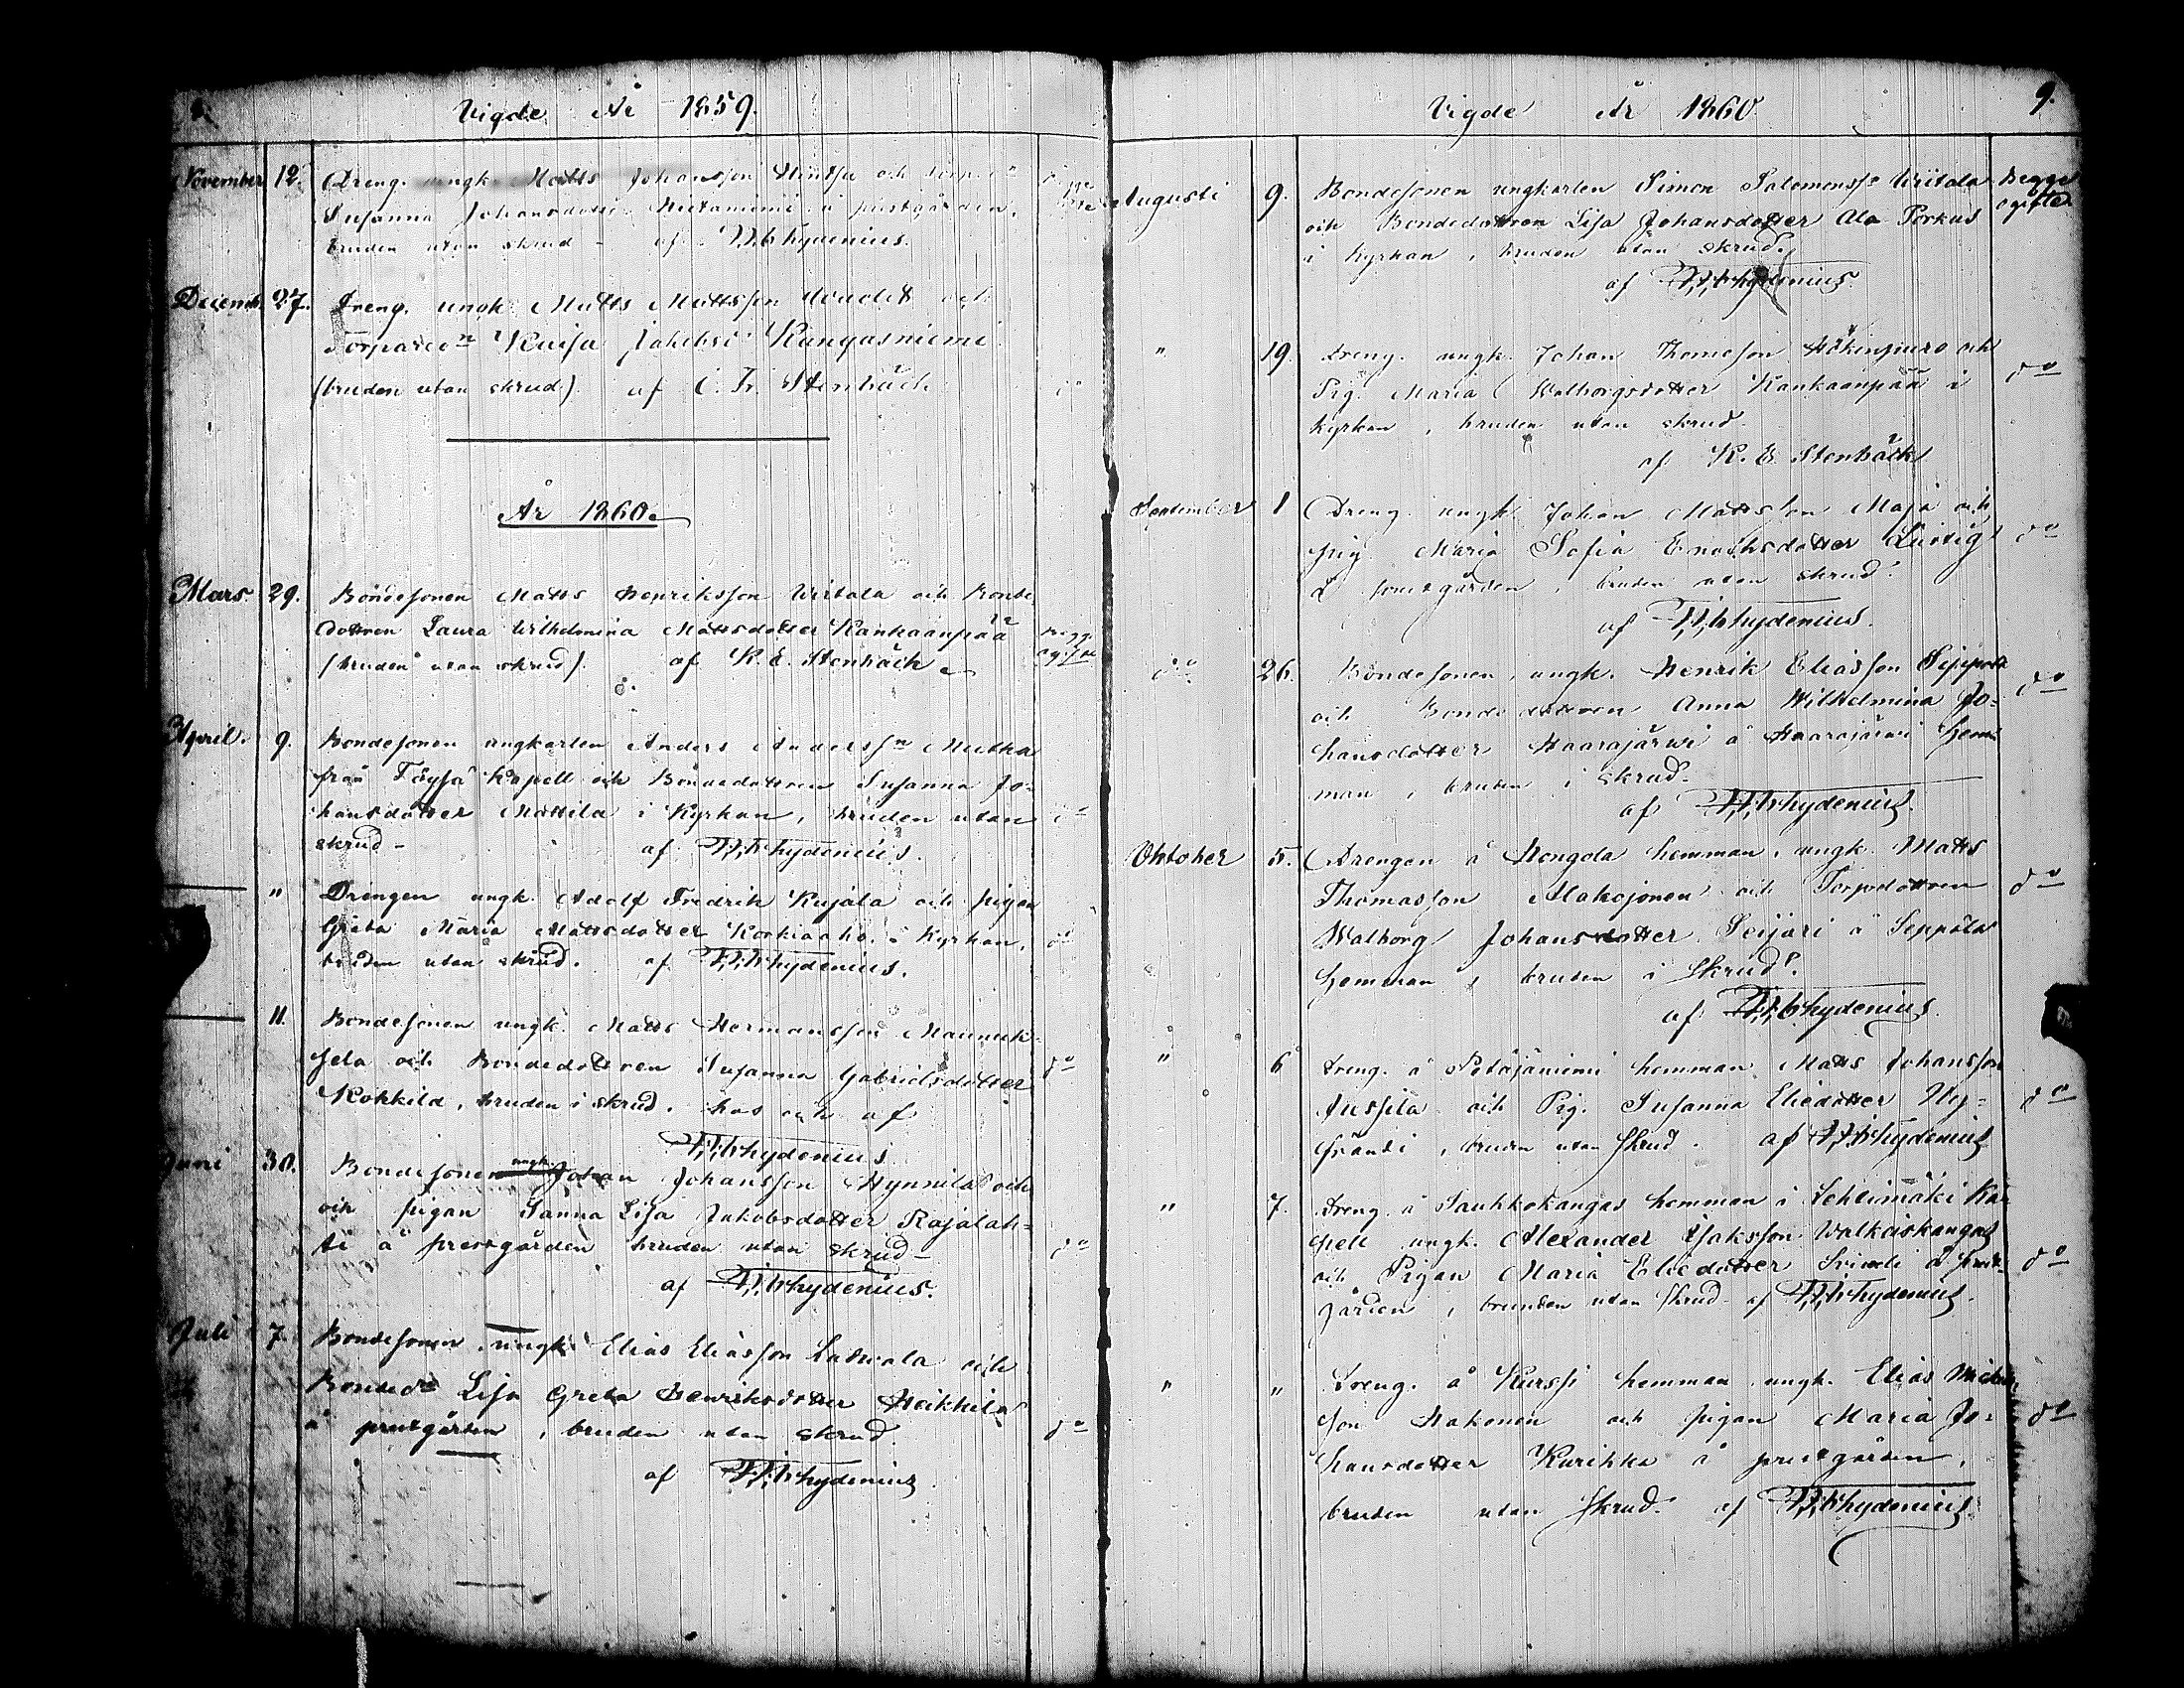 Vigde År 1859.
November 12. Dreng. ungk. Matts Johansson Hintsa och
Susanna Johansdotter å prestgården.
bruden utan skrud - af Chydenius.
Decemb. 27. Dreng. ungk. Matts Mattsson och
Kaisa Jakobsd Kangasniemi
(bruden utan skrud). af C. Fr. Stenbäck do
År 1860.
Mars 29. Bondesonen Matts Henriksson Wirtala och Bonde
dottren Laura Wilhelmina Mattsdotter Kankaanpää Begge
(bruden utan skrud). af K. E. Stenbäck ogifte
April. 9. Bondesonen ungkarlen Anders Anderssn
från Töysä Kapell och Bondedottren Susanna Jo=
hansdotter Mattila i Kyrkan, bruden utan do
skrud - af Chydenius.
" Drengen ungk. Adolf Fredrik Kujala och pigan
Greta Maria Mattsdotter Koskiaho i Kyrkan, do
bruden utan skrud. af Chydenius.
11. Bondesonen ungk. Matts Hermansson
sela och Bondedottren Susanna Gabrielsdotter do
Kokkila, bruden i skrud. hos och af
Chydenius
Juni 30. Bondesonen ungk. Johan Johansson Hynnilä och
och pigan Sanna Lisa Jakobsdotter Rajalah=
ti å prestgården bruden utan skrud - do
af Chydenius.
Juli 7. Bondesonen ungk. Elias Eliasson Latvala och
Bonded Lisa Greta Henriksdotter Heikkilä
å prestgården, bruden utan skrud. do
af Chydenius
Vigde År 1860. 9.
Augusti 9. Bondesonen ungkarlen Simon Salomonss Wiitala Begge
och Bondedottren Lisa Johansdotter Ala Porkus ogifte.
i kyrkan, bruden utan skrud.
af Chydenius.
" 19. Dreng. ungk. Johan Thomeson Hökinpuro och
Pig. Maria Walborgsdotter Kankaanpää i do
kyrkan, bruden utan skrud.
af K. E. Stenbäck
September 1 Dreng. ungk. Johan Mattsson Maja och
pig. Maria Sofia Enochsdotter Luoig do
å prestgården, bruden utan skrud.
af Chydenius.
do 26. Bondesonen, ungk. Henrik Eliasson
och Bondedottren Anna Wilhelmina Jo= do
hansdotter Haarajärwi å Haarajärwi hem
man, bruden i skrud.
af Chydenius.
Oktober 5. Drengen å Hongola hemman, ungk. Matts
Thomasson Alakojonen och Torpdottren do
Walborg Johansdotter Seijari å Seppälä
hemman, bruden i skrud.
af Chydenius.
" 6 Dreng. å Petäjäniemi hemman Matts Johansson
och Pig. Susanna Eliedotter Ny= do
gränd, bruden utan skrud. af Chydenius
" 7. Dreng. å Sauhkokangas hemman i Lehtimäki Ka
pell ungk. Alexander Isaksson Walkeiskangas
och Pigan Maria Eliedotter å prest= do
gården, bruden utan skrud. af Chydenius.
" " Dreng. å Kurssi hemman ungk. Elias
son Hakonen och pigan Maria Jo= do
hansdotter Kurikka å prestgården,
bruden utan skrud. af Chydenius